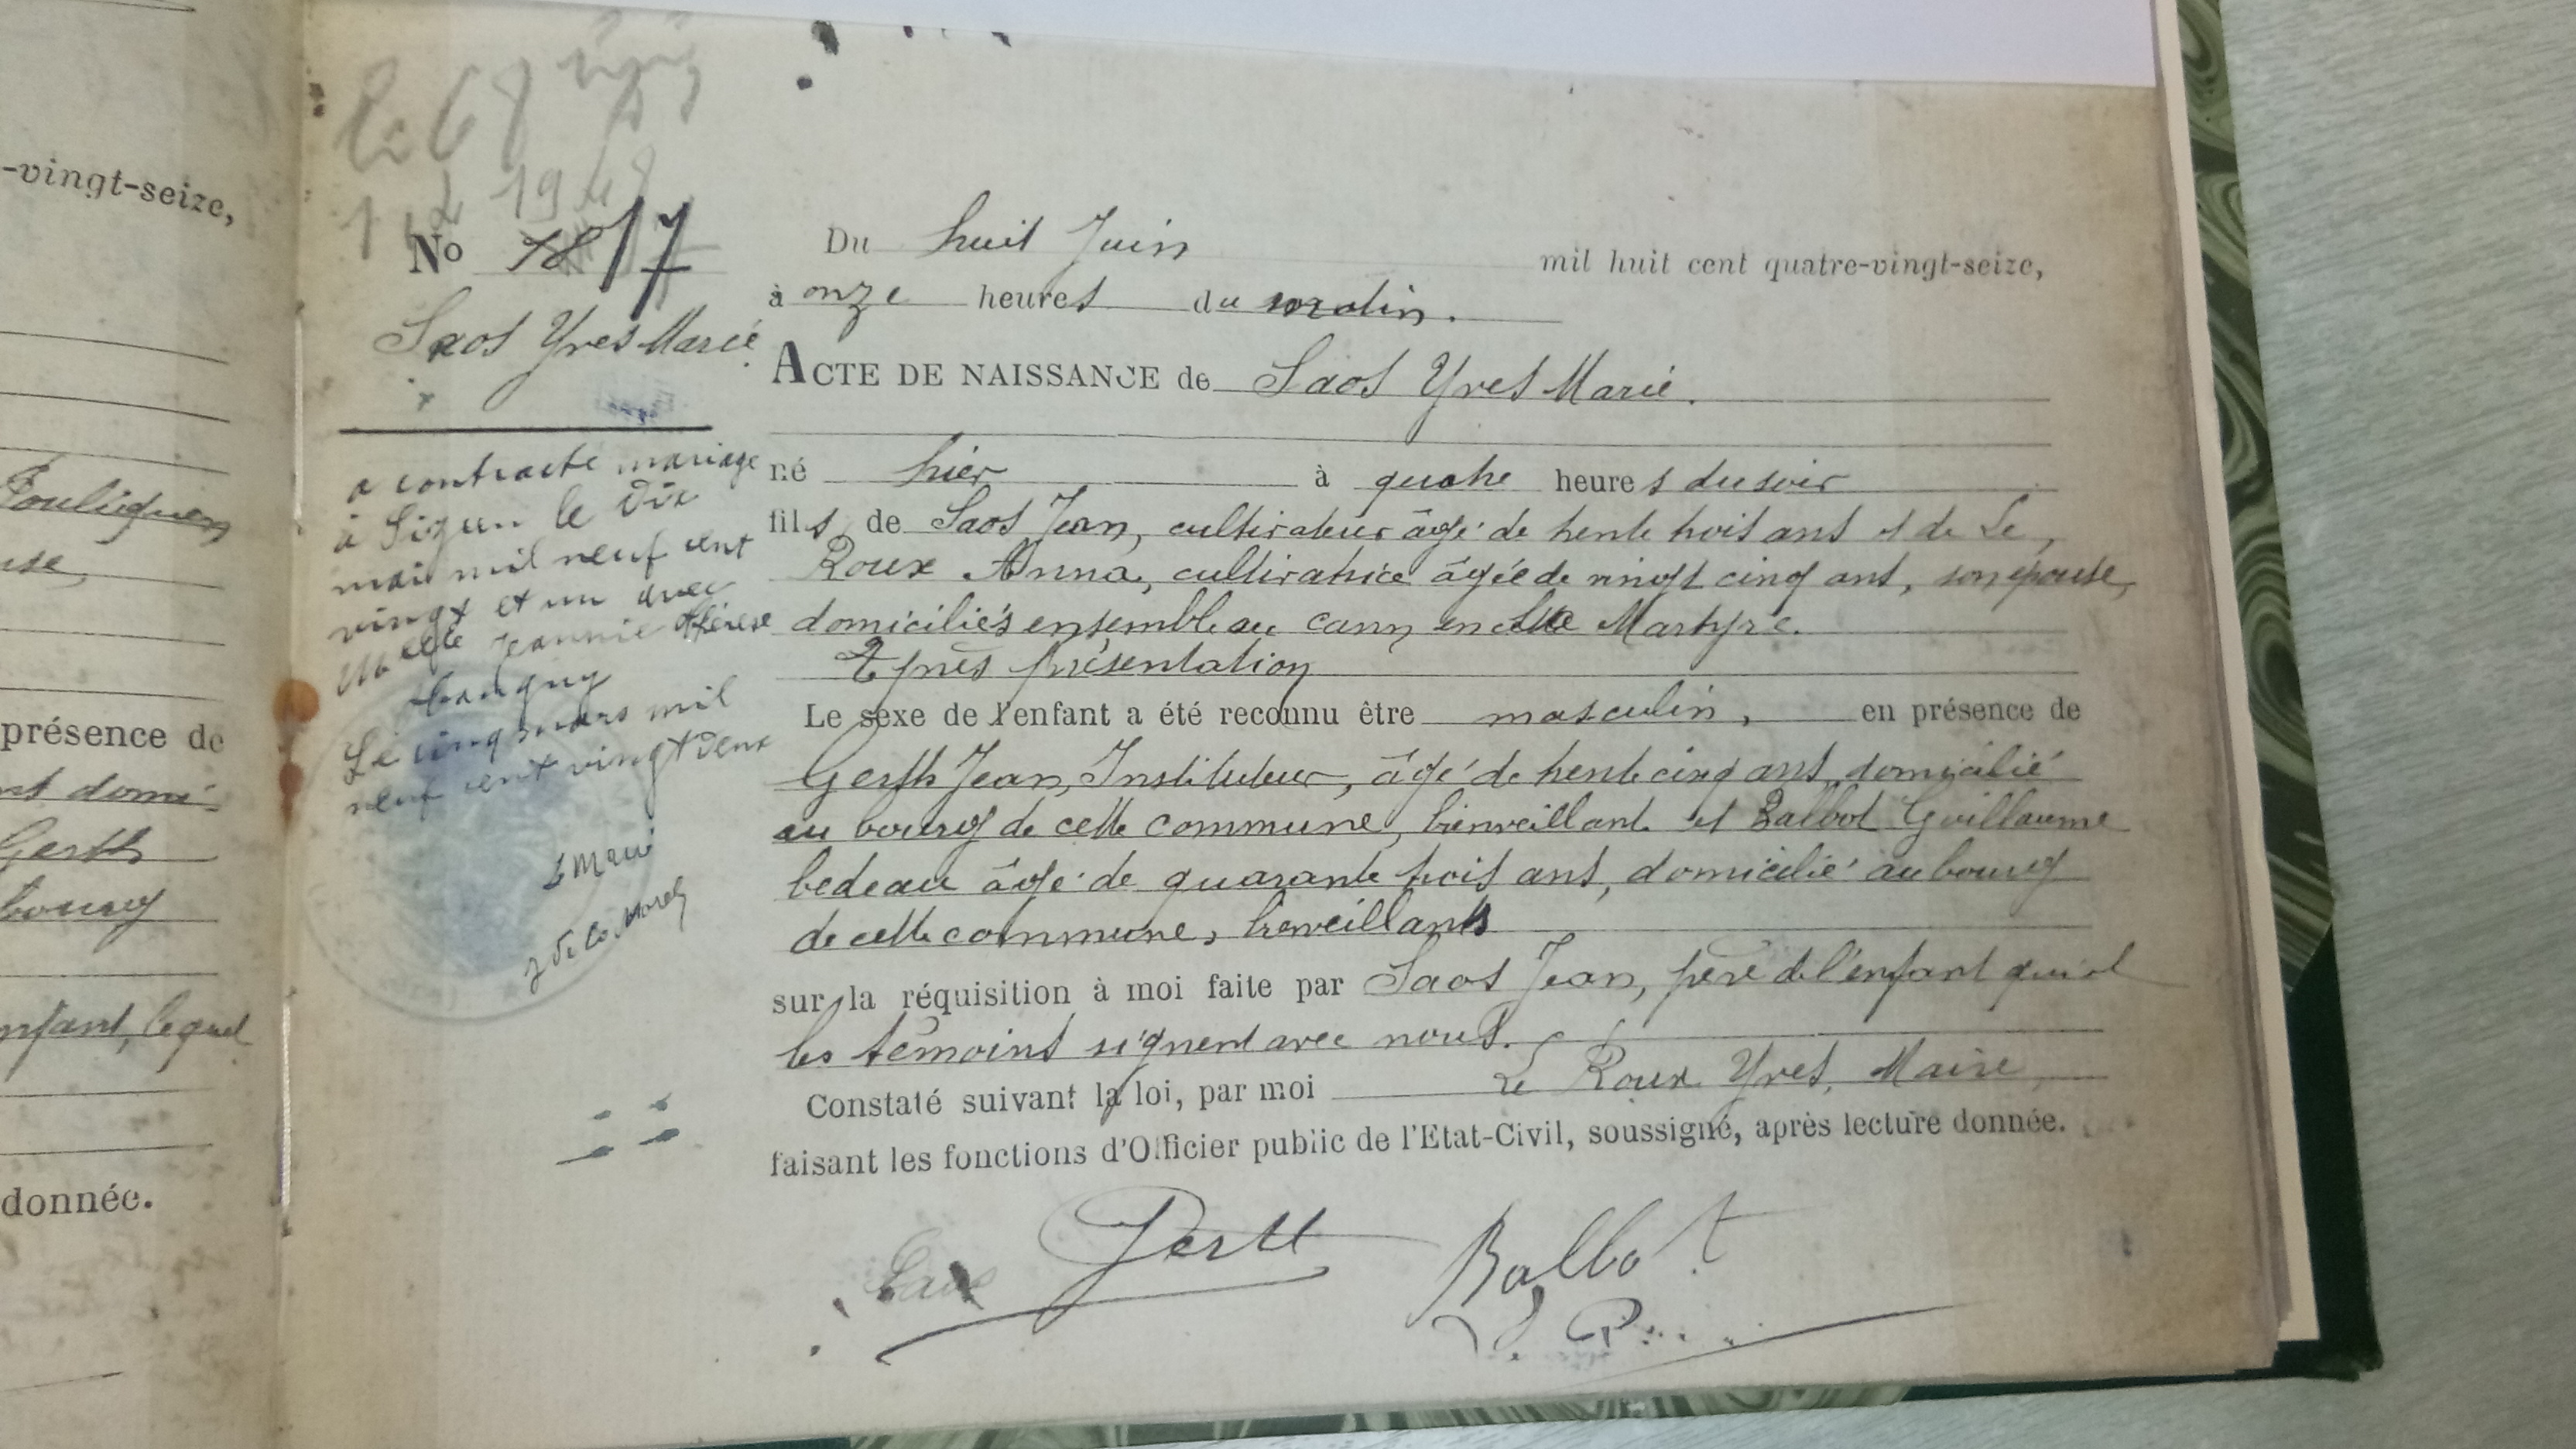 -vingt-seize,
Pouliquen
présence de
Gerth
bourg
enfant, lequel
donnée.
No 18 17
Saos Yves Marie
a contracté mariage
à Sizun le dix
mai mil neuf cent
vingt et un avec
Melle Jeannie Thérèse
Le cinq mars mil
neuf cent vingt deux
Le Maire
Du huit Juin mil huit cent quatre-vingt-seize,
à onze heures du matin.
ACTE DE NAISSANCE de Saos Yves Marie.
né hier à quatre heures du soir
fils de Saos Jean, cultivateur âgé de trente trois ans et de Le
Roux Anna, cultivatrice âgée de vingt cinq ans, son épouse,
domiciliés ensemble au cann en La Martyre.
Après présentation
Le sexe de l'enfant a été reconnu être masculin, en présence de
Gerth Jean, Instituteur, âgé de trente cinq ans, domicilié
au bourg de cette commune, bienveillant et Balbot Guillaume
bedeau âgé de quarante trois ans, domicilié au bourg
de cette commune, bienveillants
sur la réquisition à moi faite par Saos Jean, père de l'enfant qui et
les témoins signent avec nous.
Constaté suivant la loi, par moi Le Roux Yves, Maire,
faisant les fonctions d'Officier public de l'Etat-Civil, soussigné, après lecture donnée.
Saos Gerth Balbot